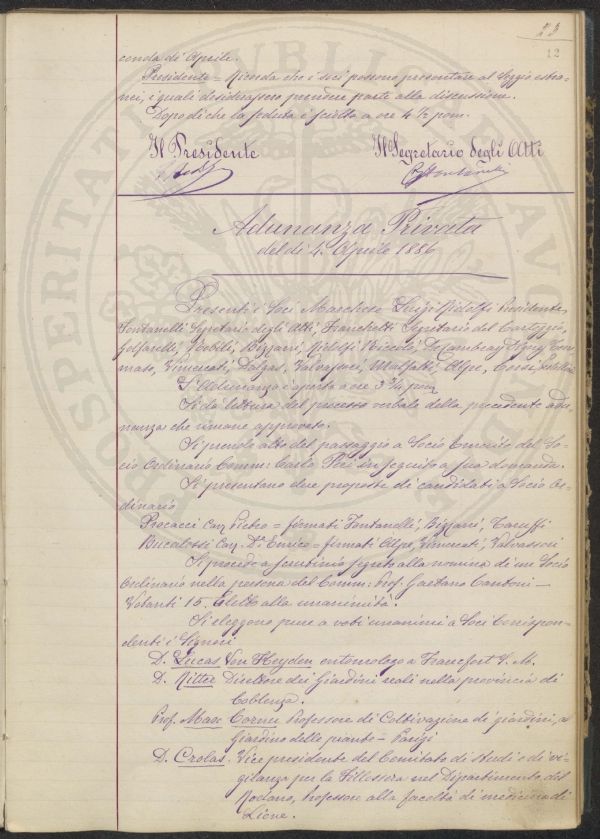 23
12
conda di Aprile.
Presidente = Ricorda che i soci possono presentare al Seggio estra-
nei, i quali desiderassero prendere parte alla discussione.
Dopo di che la seduta è sciolta a ore 4 ½ pom.
Il Presidente Il Segretario degli Atti
Adunanza Privata
del dì 4 Aprile 1886
Presenti i Soci Marchese Luigi Ridolfi Presidente,
Fontanelli Segretario degli Atti, Franchetti Segretario del Carteggio,
Golfarelli, Nobili, Bizzarri, Ridolfi Niccolò, De Cambray Digny Tom-
maso, Vimercati, Dalgas, Valvassori, Malfatti, Alpe, Corsi
L'Adunanza è aperta a ore 3 ¼ pom.
Si dà lettura del processo verbale della precedente adu-
nanza che rimane approvato.
Si prende atto del passaggio a Socio Emerito del So-
cio Ordinario Comm: Carlo Peri in seguito a sua domanda.
Si presentano due proposte di candidati a Socio Or-
dinario
Procacci Cav. Pietro = firmati Fontanelli, Bizzarri, Taruffi
Bucalossi Cav. Dr. Enrico = firmati Alpe, Vimercati, Valvassori
Si procede a scrutinio segreto alla nomina di un Socio
Ordinario nella persona del Comm: Prof. Gaetano Cantoni -
Votanti 15. Eletto alla unanimità.
Si eleggono pure a voti unanimi a Soci Corrispon-
denti i Signori
D. Lucas Von Heyden entomologo a Francfort S. M.
D. Ritter Direttore dei Giardini reali nella provincia di
Coblenza.
Prof. Maxe Cornu Professore di Coltivazione di giardini, al
Giardino delle piante - Parigi
D. Crolas. Vice presidente del Comitato di studi e di vi-
gilanza per la Fillossera nel Dipartimento del
Rodano, Professore alla facoltà di medicina di
Lione.
PROSPERITATI PUBLICAE AUGENDAE